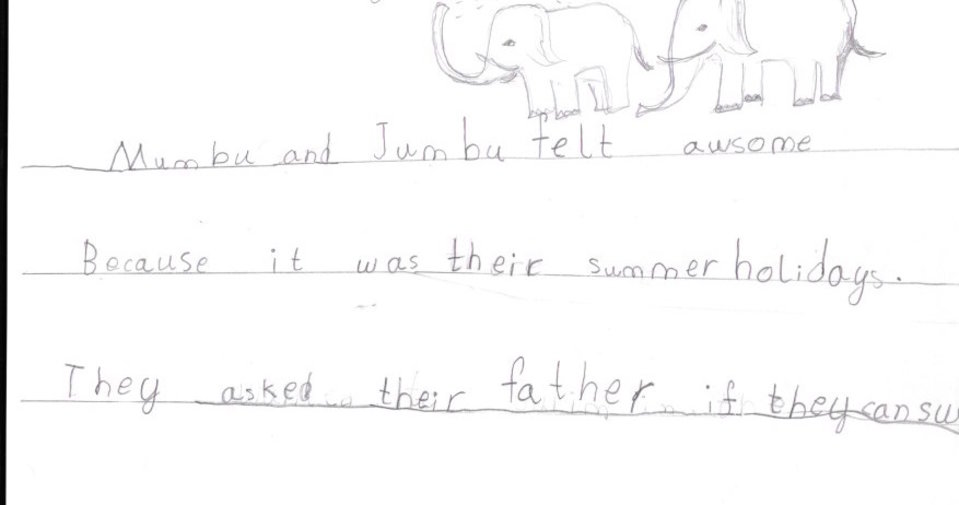 Mumbu and Jumbu felt awsome
Because it was their summer holidays.
They asked their father if they can